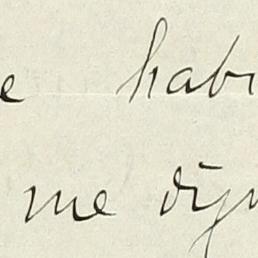 e habi
me dign